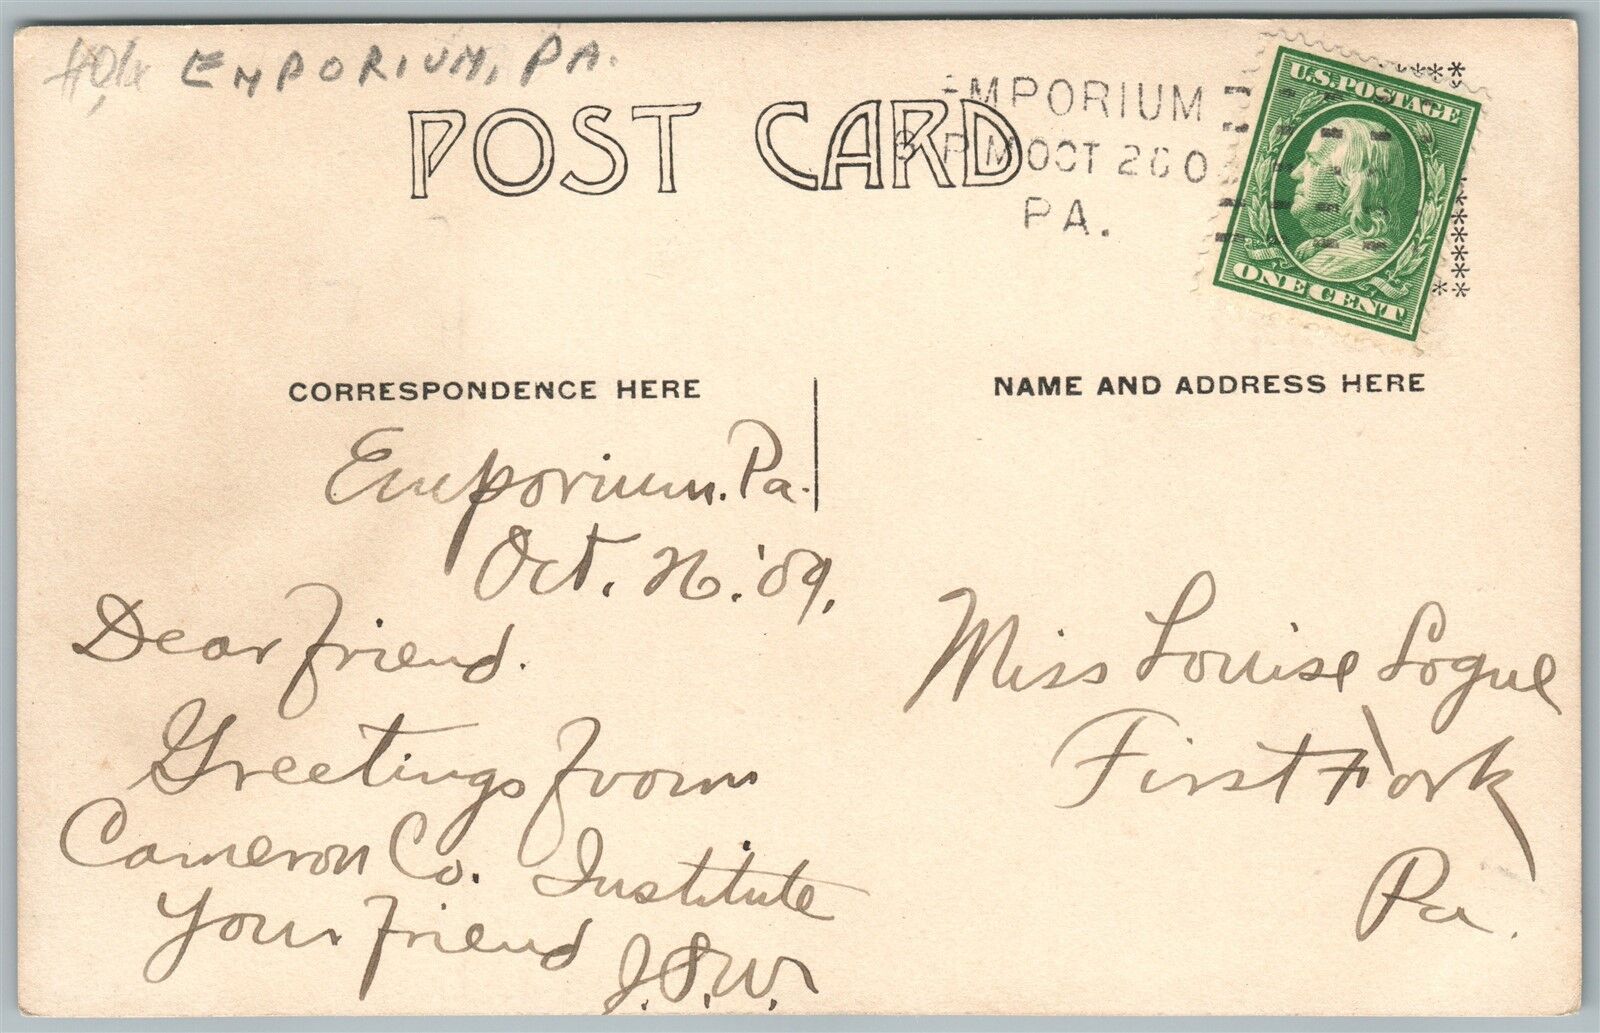 EMPORIUM, PA.
POST CARD
EMPORIUM
PM OCT 26 0
PA.
U.S. POSTAGE
ONE CENT
CORRESPONDENCE HERE
NAME AND ADDRESS HERE
Emporium. Pa.
Oct. 26. '09.
Dear Friend.
Greetings from
Cameron Co. Institute
Your Friend
J.S.W.
Miss Louise Logue
First Fork
Pa.